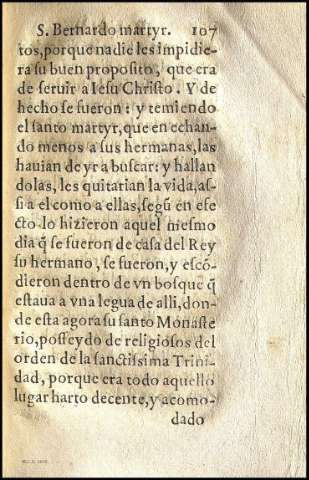 S. Bernardo martyr. 107
tos, porque nadie les impidie-
ra su buen proposito, que era
de seruir a Iesu Christo. Y de
hecho se fueron: y temiendo
el santo martyr, que en echan-
do menos a sus hermanas, las
hauian de yr a buscar: y hallan
dolas, les quitarian la vida, as-
si a el como a ellas, segũ en efe
cto lo hizieron aquel mesmo
dia q̃ se fueron de casa del Rey
su hermano, se fueron, y escõ-
dieron dentro de vn bosque q̃
estaua a vna legua de alli, don-
de esta agora su santo Monaste
rio, posseydo de religiosos del
orden de la sanctissima Trini-
dad, porque era todo aquello
lugar harto decente, y acomo-
dado